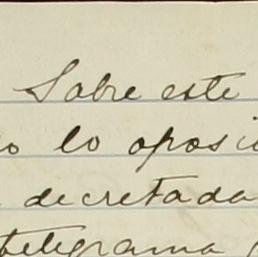 Sobre este
o lo oposi
decretada
telegrama